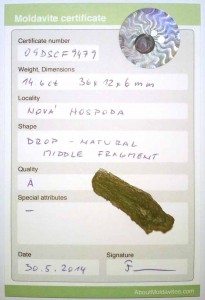 Moldavite certificate
Certificate number
04DSCF9479
Weight, Dimensions
14.6ct 36x12x6mm
Locality
NOVÁ HOSPODA
Shape
DROP - NATURAL
MIDDLE FRAGMENT
Quality
A
Special attributes
–
Date
30.5.2014
Signature
AboutMoldavites.com